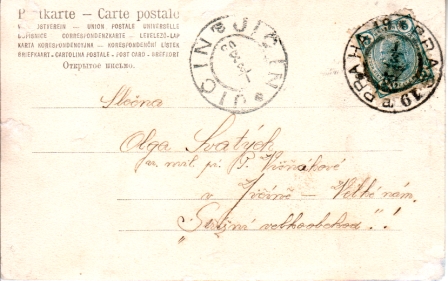 Postkarte — Carte postale
WELTPOSTVEREIN — UNION POSTALE UNIVERSELLE
DOPISNICE CORRESPONDENZKARTE — LEVELEZŐ-LAP
KARTA KORESPONDENCYJNA — KORESPONDENČNÍ LÍSTEK
BRIEFKAART-CARTOLINA POSTALE-POST CARD-BREFKORT
Открытое письмо.
JIČÍN JIČÍN
PRAHA 19 PRAG
Slečna
Olga Svatých
p. Višňákové
v Jičíně — Velké nám.
velkoobchod"!